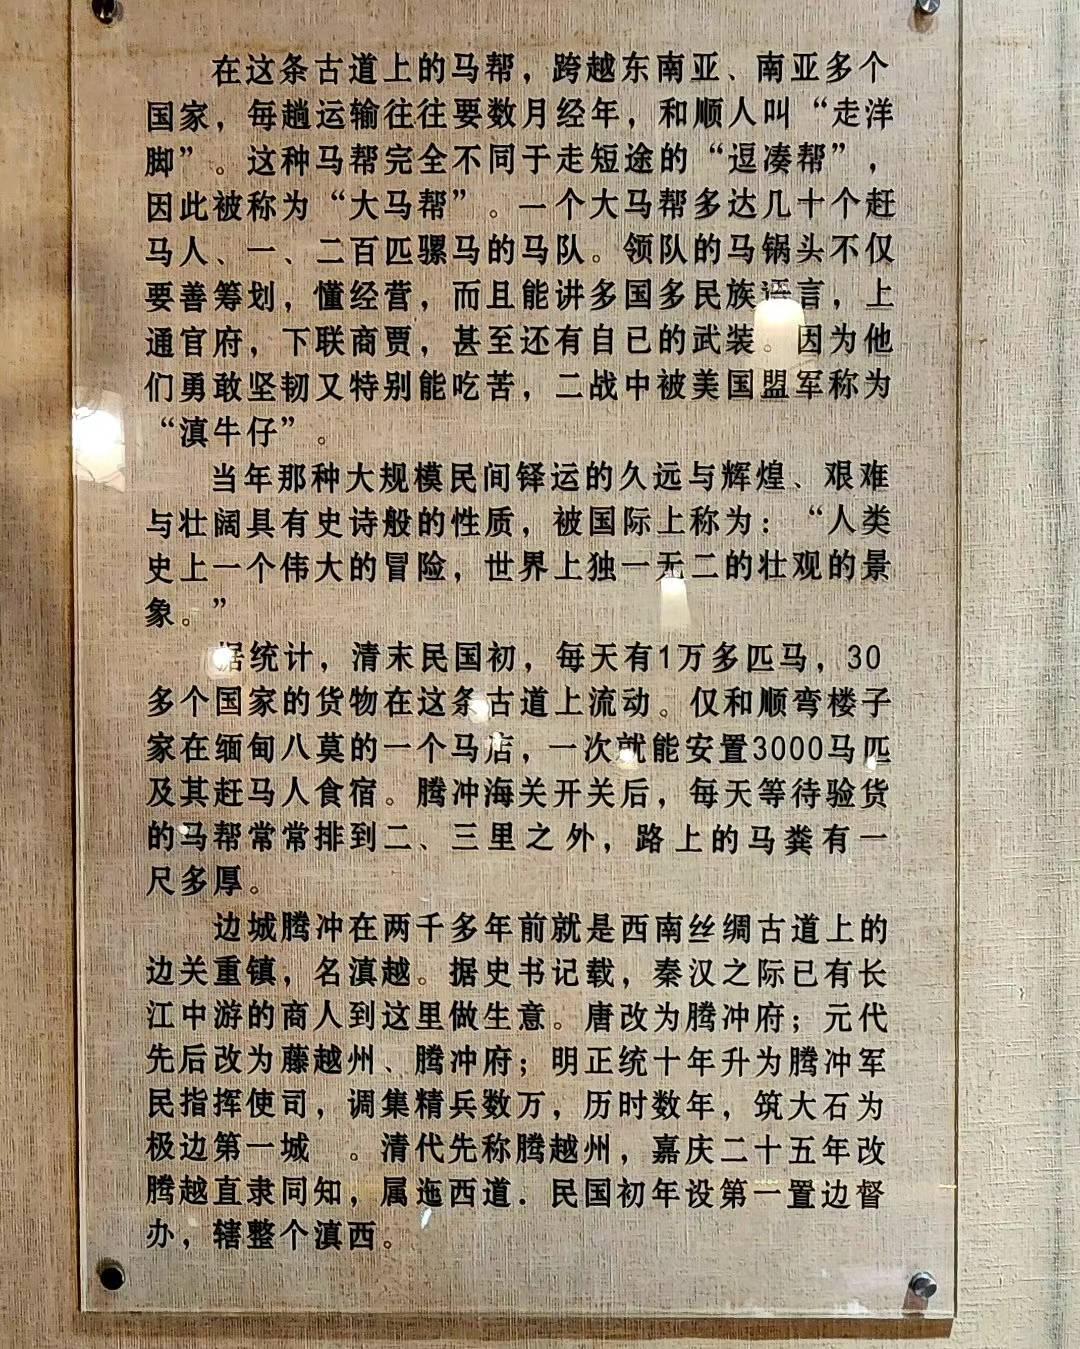 在这条古道上的马帮，跨越东南亚、南亚多个
国家，每趟运输往往要数月经年，和顺人叫“走洋
脚”。这种马帮完全不同于走短途的“逗凑帮”，
因此被称为“大马帮”。一个大马帮多达几十个赶
马人、一、二百匹骡马的马队。领队的马锅头不仅
要善筹划，懂经营，而且能讲多国多民族语言，上
通官府，下联商贾，甚至还有自已的武装。因为他
们勇敢坚韧又特别能吃苦，二战中被美国盟军称为
“滇牛仔”。
当年那种大规模民间铎运的久远与辉煌、艰难
与壮阔具有史诗般的性质，被国际上称为：“人类
史上一个伟大的冒险，世界上独一无二的壮观的景
象。”
据统计，清末民国初，每天有1万多匹马，30
多个国家的货物在这条古道上流动。仅和顺弯楼子
家在缅甸八莫的一个马店，一次就能安置3000马匹
及其赶马人食宿。腾冲海关开关后，每天等待验货
的马帮常常排到二、三里之外，路上的马粪有一
尺多厚。
边城腾冲在两千多年前就是西南丝绸古道上的
边关重镇，名滇越。据史书记载，秦汉之际已有长
江中游的商人到这里做生意。唐改为腾冲府；元代
先后改为藤越州、腾冲府；明正统十年升为腾冲军
民指挥使司，调集精兵数万，历时数年，筑大石为
极边第一城 。清代先称腾越州，嘉庆二十五年改
腾越直隶同知，属迤西道．民国初年设第一置边督
办，辖整个滇西。